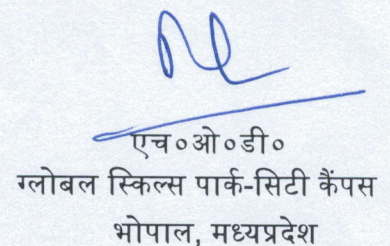 एच०ओ०डी०
ग्लोबल स्किल्स पार्क-सिटी कैंपस
भोपाल, मध्यप्रदेश